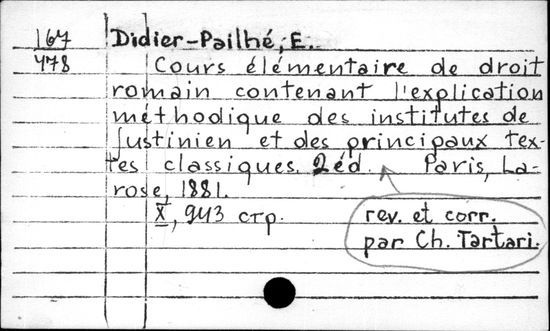 167 Didier-Pailhé, E.
478 Cours élémentaire de droit
romain contenant l'explication
méthodique des institutes de
Justinien et des principaux tex-
tes classiques. 2éd. Paris, La-
rose, 1881.
X, 943 стр.
rev. et corr.
par Ch. Tartari.